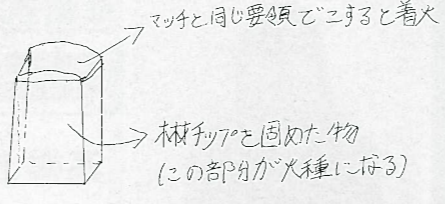 マッチと同じ要領でこすると着火
木材チップを固めた物
(この部分が火種になる)